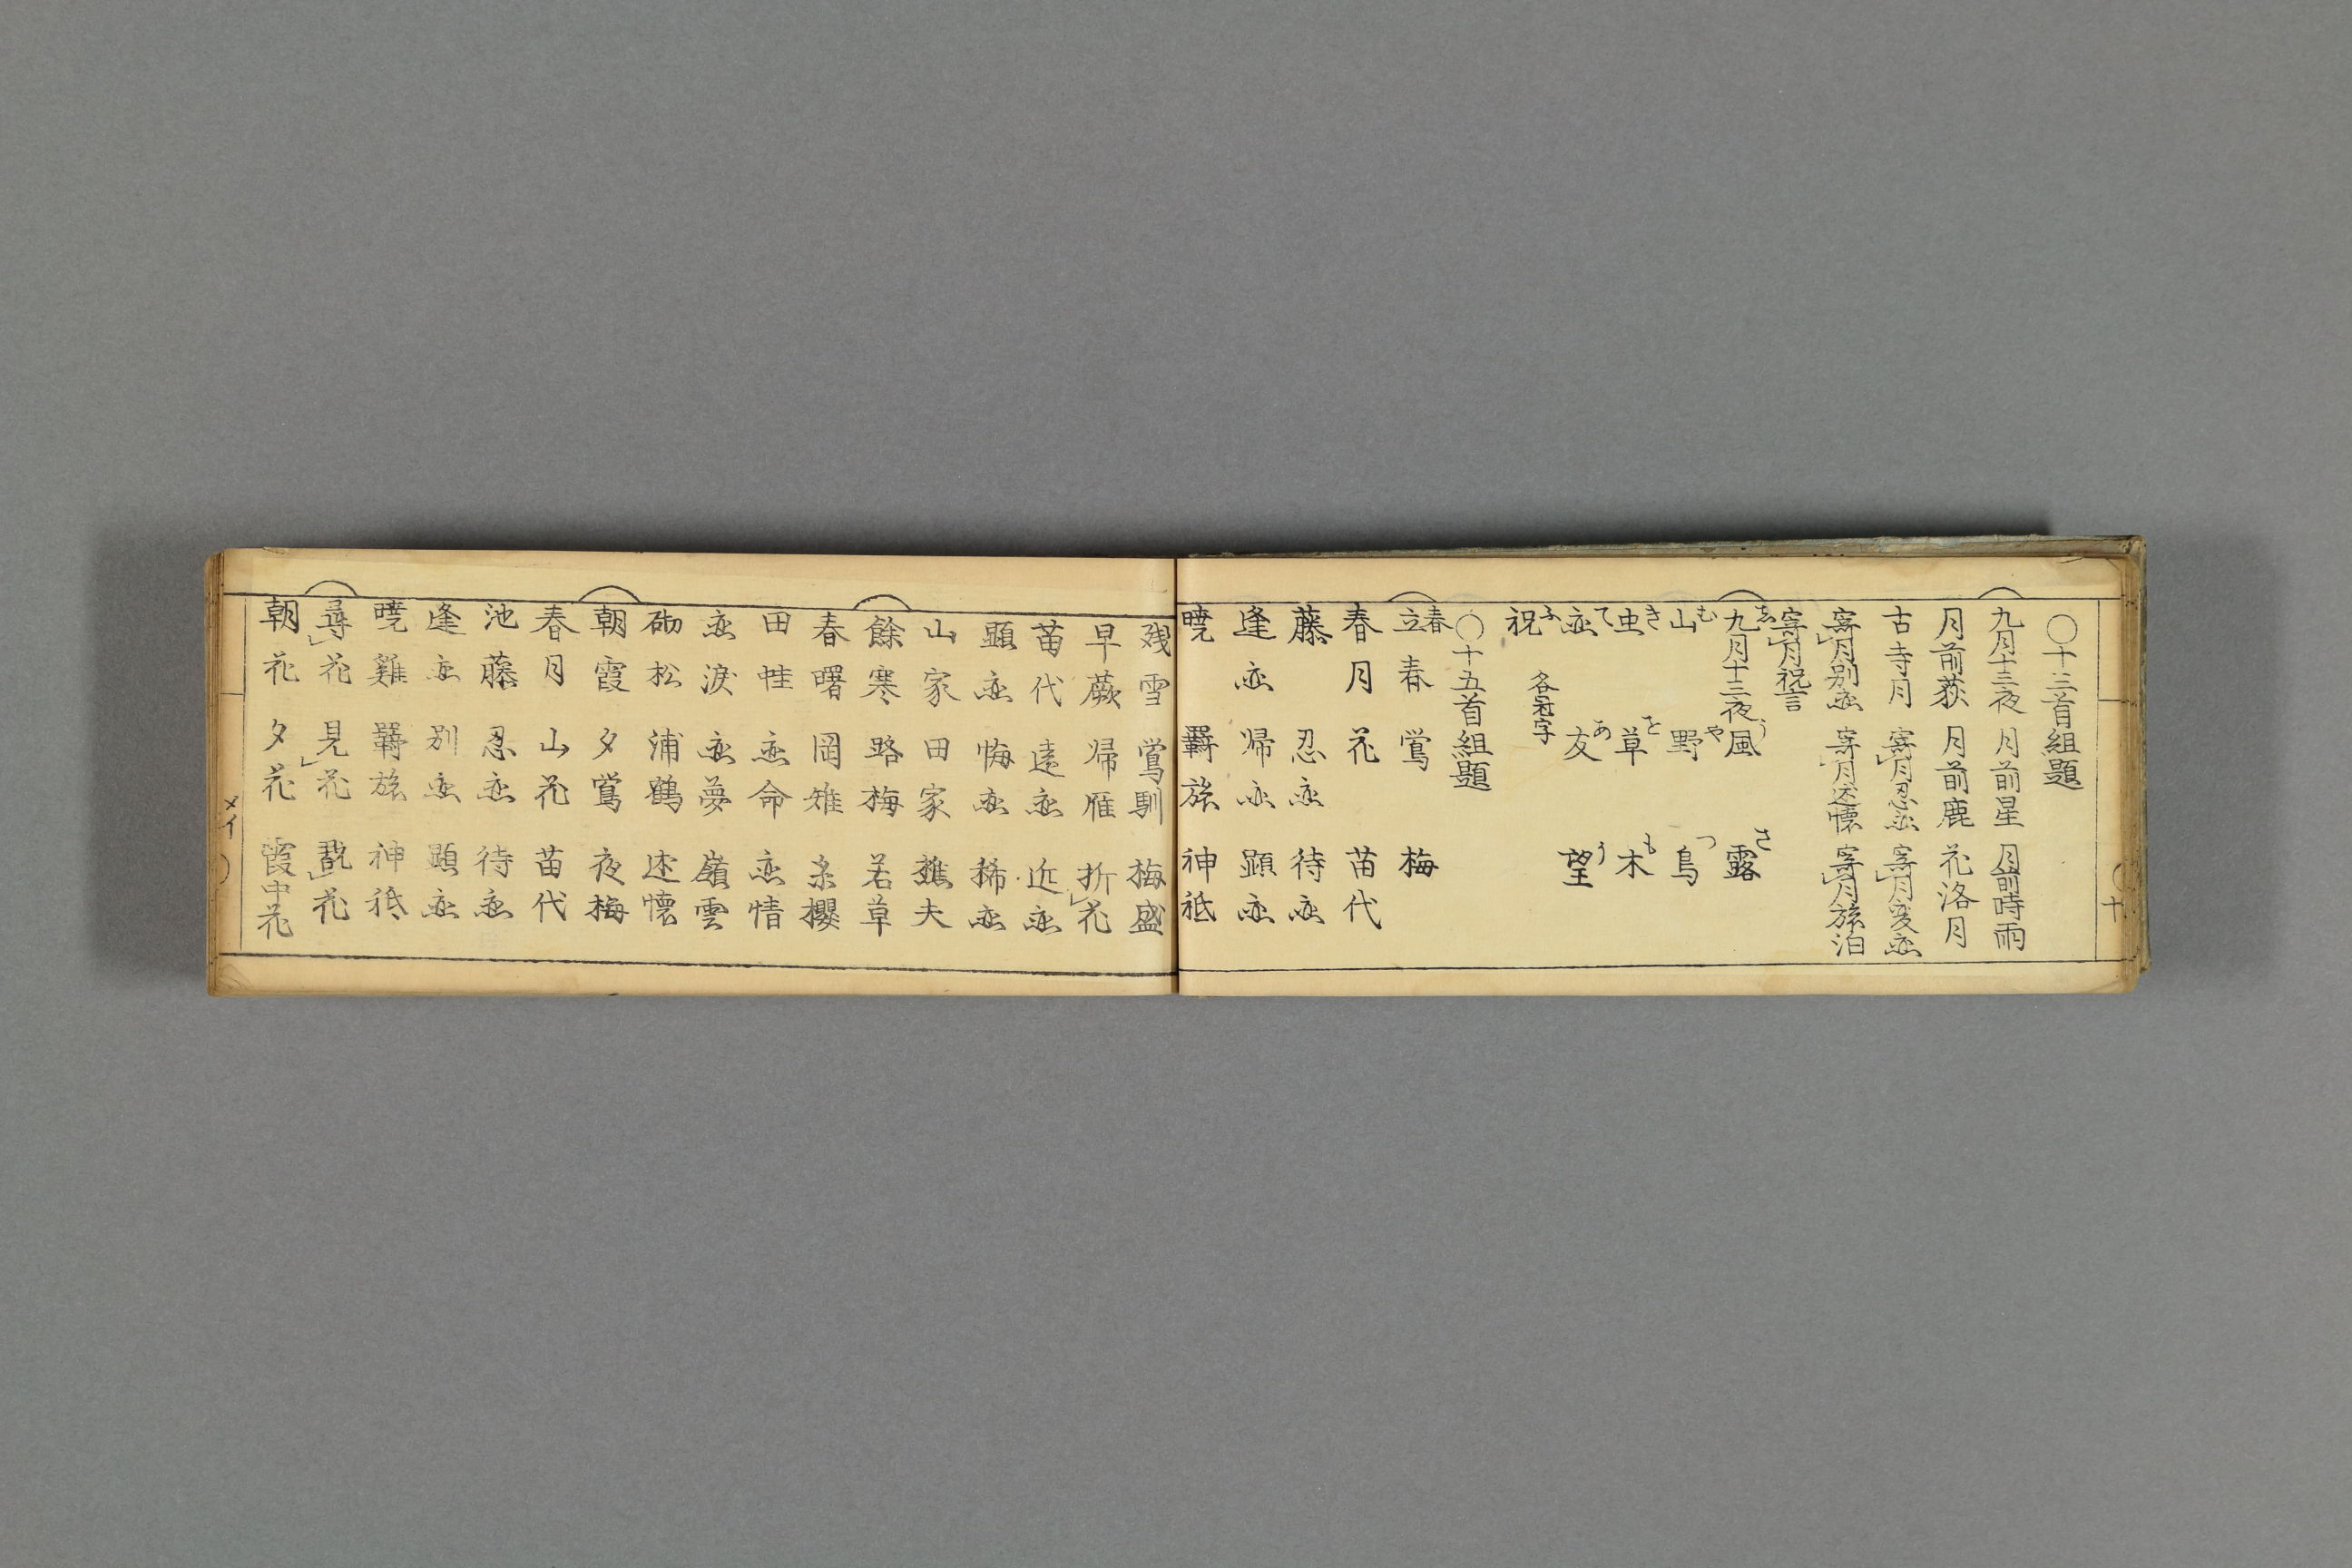 〇十三首組題
九月十三夜 月前星 月前時雨
月前荻 月前鹿 花洛月
古寺月 寄月忍恋 寄月変恋
寄月別恋 寄月述懐 寄月旅泊
寄月祝言
九月十三夜 風う 露さ
山む 野や 鳥つ
虫き 草を 木も
恋て 友あ 望う
祝ふ 各冠字
〇十五首組題
春
立春 鶯 梅
春月 花 苗代
藤 忍恋 待恋
逢恋 帰恋 顕恋
暁 羇旅 神祇
残雪 鶯馴 梅盛
早蕨 帰雁 折花
苗代 遠恋 近恋
顕恋 悔恋 稀恋
山家 田家 樵夫
餘寒 路梅 若草
春曙 岡雉 糸櫻
田蛙 恋命 恋情
恋涙 恋夢 嶺雲
砌松 浦鶴 述懐
朝霞 夕鶯 夜梅
春月 山花 苗代
池藤 忍恋 待恋
逢恋 別恋 顕恋
暁雞 羇旅 神祇
尋花 見花 翫花
朝花 夕花 霞中花
十
メイ